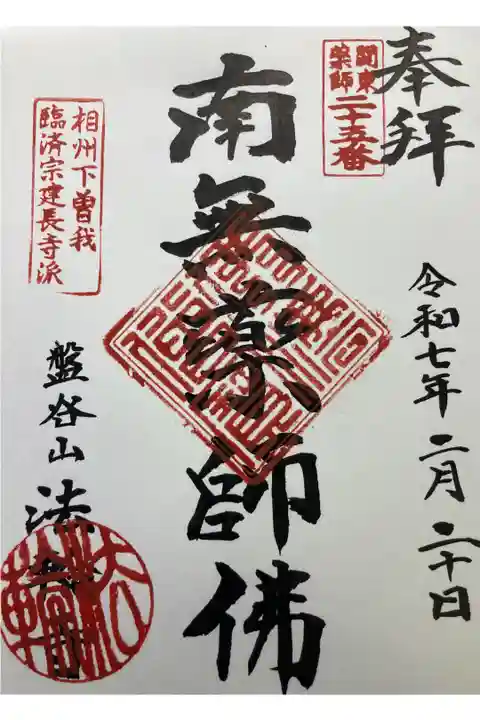 奉拝
令和七年二月二十日
関東
薬師
二十五番
南無薬師佛
相州下曽我
臨済宗建長寺派
盤谷山 法
法輪